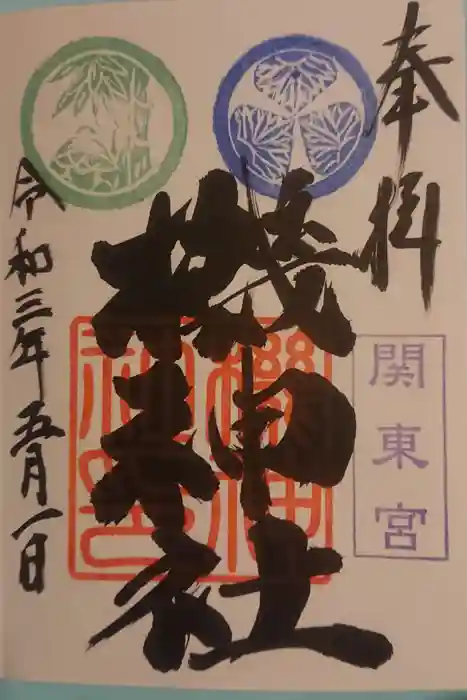 奉拝
関東宮
機神社
機神社印
令和三年五月一日